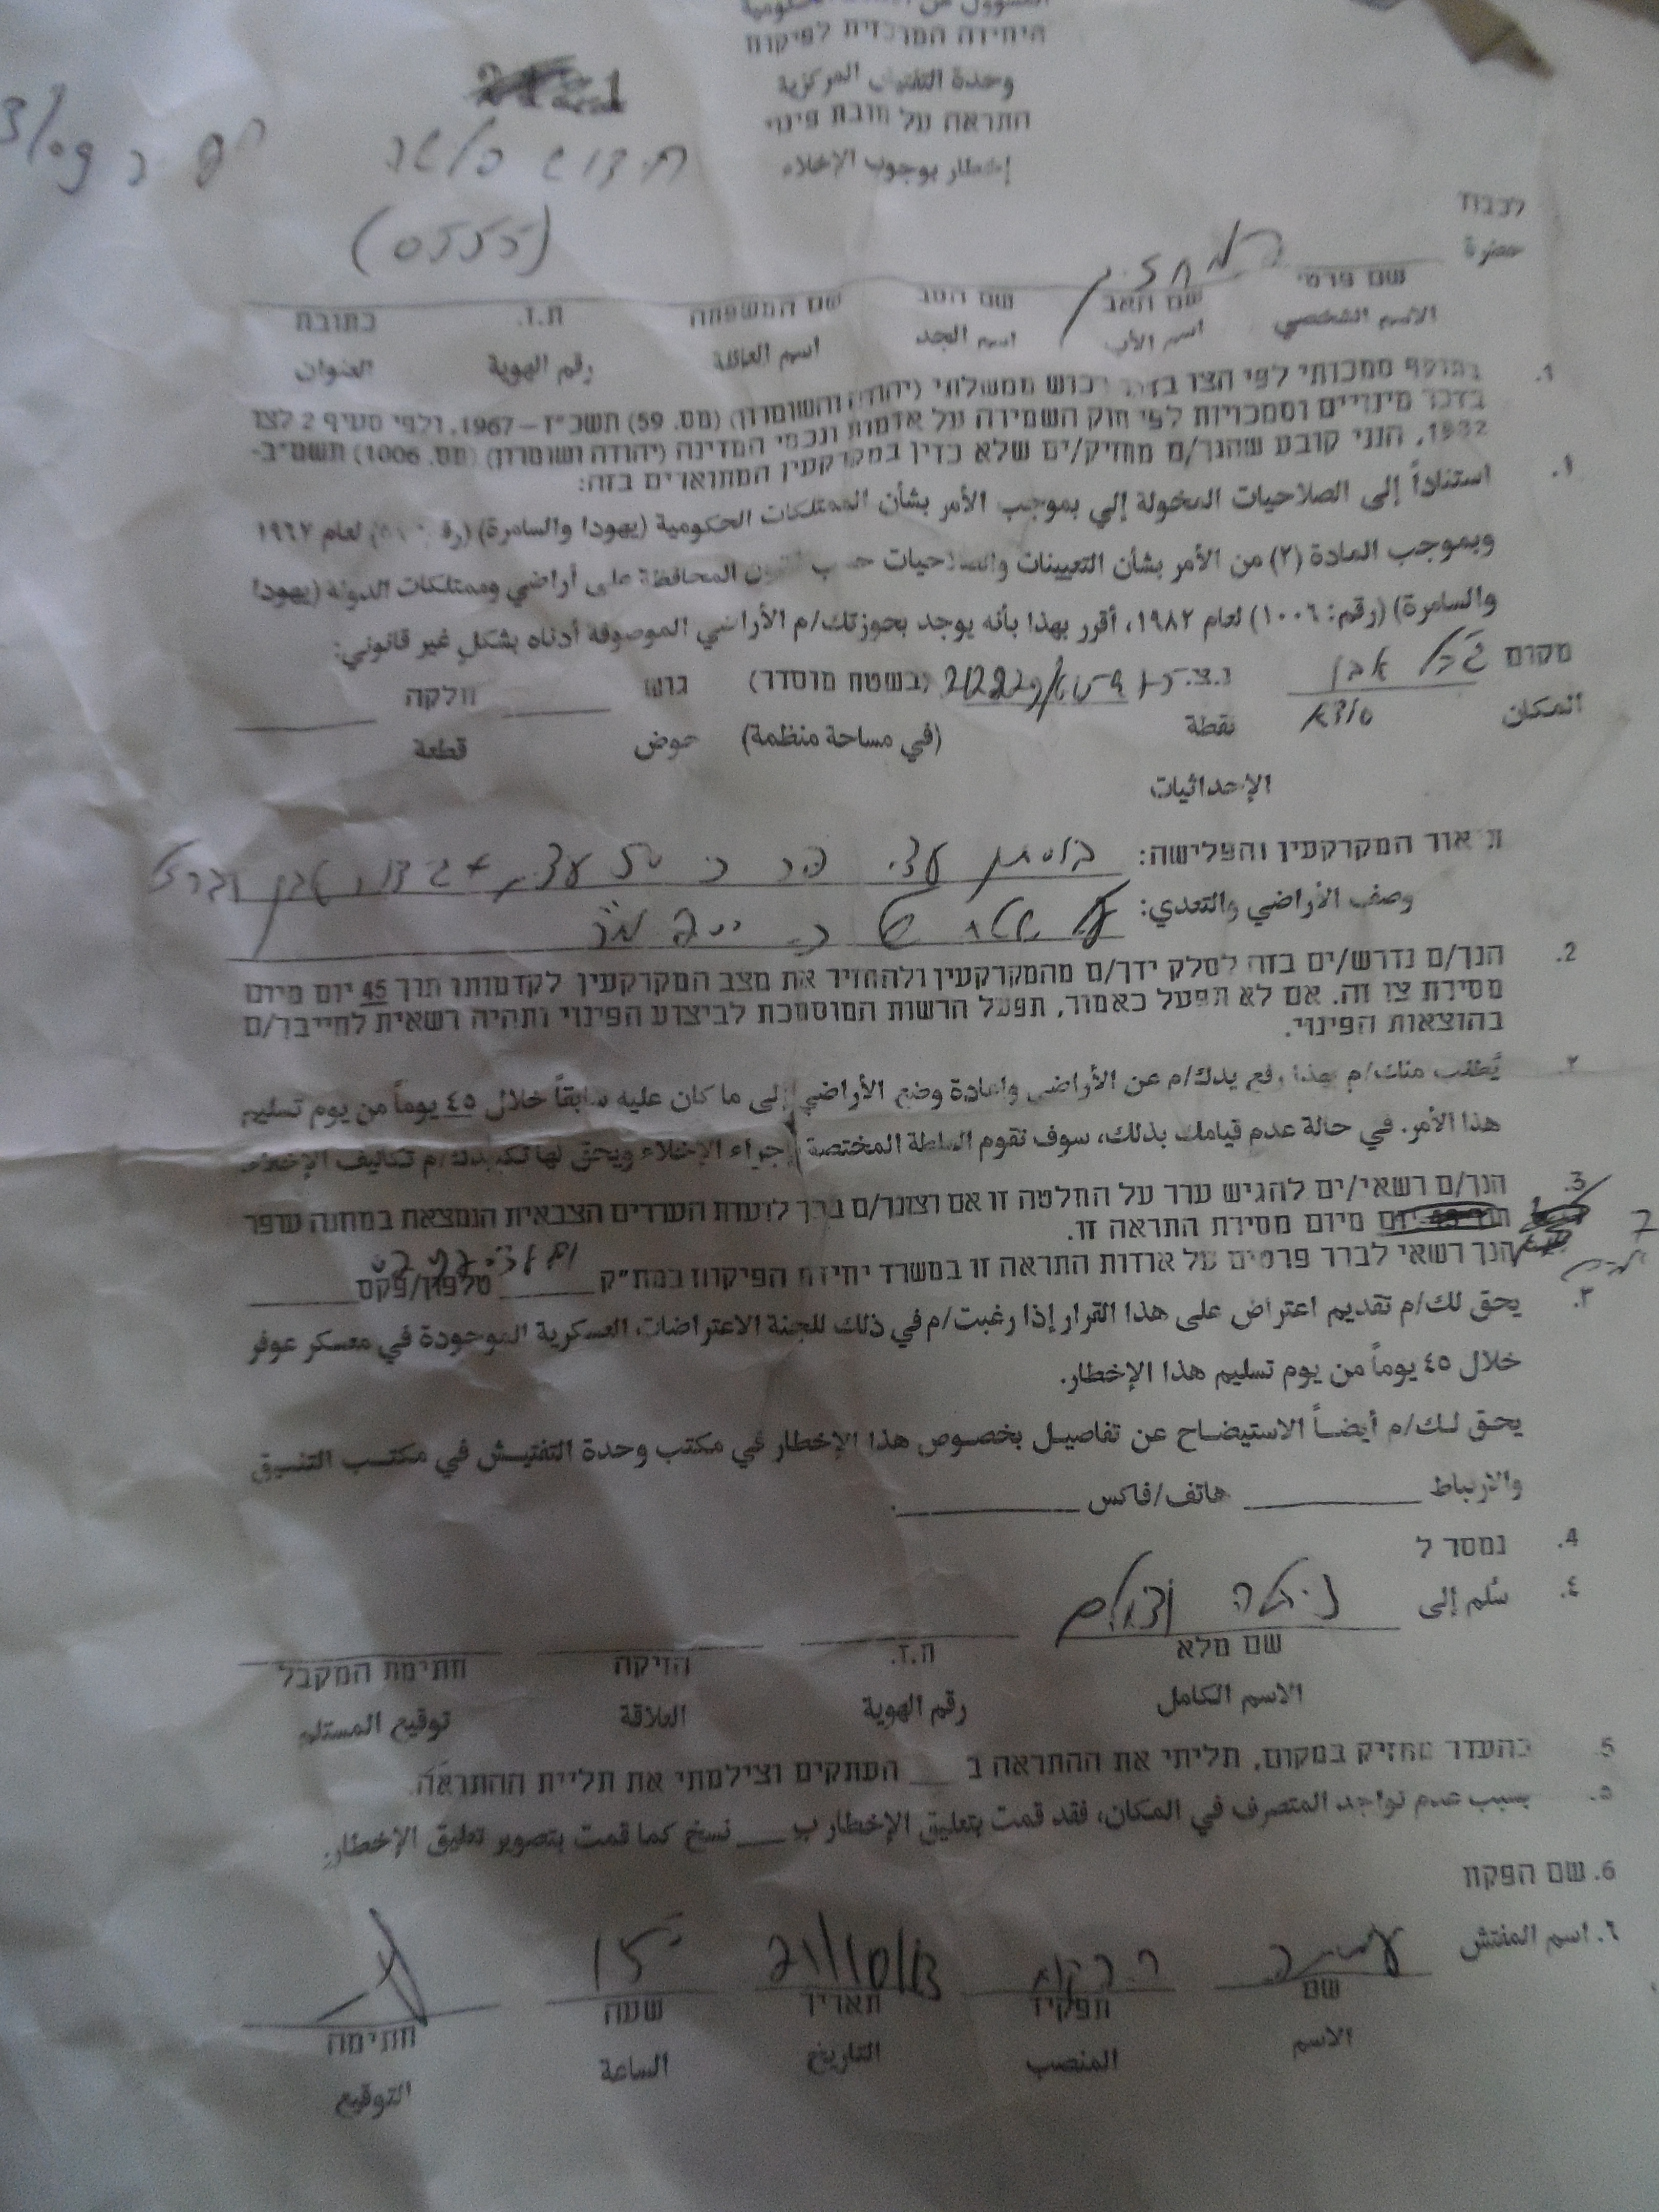 היחידה המרכזית לפיקוח
وحدة التفتيش المركزية
התראה על חובת פינוי
إخطار بوجوب الإخلاء
(0555)
לכבוד
حضرة
שם פרטי שם האב שם הסב שם המשפחה ת.ז. כתובת
الاسم الشخصي اسم الأب اسم الجد اسم العائلة رقم الهوية العنوان
1. בתוקף סמכותי לפי הצו בדבר רכוש ממשלתי (יהודה והשומרון) (מס. 59) תשכ"ז – 1967, ולפי סעיף 2 לצו
בדבר מינויים וסמכויות לפי חוק השמירה על אדמות ונכסי המדינה (יהודה ושומרון) (מס. 1006) תשמ"ב-
1982, הנני קובע שהנך/ם מחזיק/ים שלא כדין במקרקעין המתוארים בזה:
١. استناداً إلى الصلاحيات المخولة إلي بموجب الأمر بشأن الممتلكات الحكومية (يهودا والسامرة) لعام ١٩٦٧
وبموجب المادة (٢) من الأمر بشأن التعيينات والصلاحيات حسب قانون المحافظة على أراضي وممتلكات الدولة (يهودا
والسامرة) (رقم: ١٠٠٦) لعام ١٩٨٢، أقرر بهذا بأنه يوجد بحوزتك/م الأراضي الموصوفة أدناه بشكل غير قانوني:
מקום נ.צ. (בשטח מוסדר) גוש חלקה
المكان نقطة (في مساحة منظمة) حوض قطعة
الإحداثيات
תאור המקרקעין והפלישה: בוסתן עצי
وصف الأراضي والتعدي:
2. הנך/ם נדרש/ים בזה לסלק ידך/ם מהמקרקעין ולהחזיר את מצב המקרקעין לקדמותו תוך 45 יום מיום
מסירת צו זה. אם לא תפעל כאמור, תפעל הרשות המוסמכת לביצוע הפינוי ותהיה רשאית לחייבך/ם
בהוצאות הפינוי.
٢. يُطلب منك/م بهذا رفع يدك/م عن الأراضي واعادة وضع الأراضي إلى ما كان عليه سابقاً خلال ٤٥ يوماً من يوم تسليم
هذا الأمر. في حالة عدم قيامك بذلك، سوف تقوم السلطة المختصة بإجراء الإخلاء ويحق لها تكبيدك/م تكاليف الإخلاء.
3. הנך/ם רשאי/ים להגיש ערר על החלטה זו אם רצונך/ם בכך לועדת העררים הצבאית הנמצאת במחנה עופר
תוך 45 יום מיום מסירת התראה זו.
הנך רשאי לברר פרטים על אודות התראה זו במשרד יחידת הפיקוח במת"ק טלפון/פקס
٣. يحق لك/م تقديم اعتراض على هذا القرار إذا رغبت/م في ذلك للجنة الاعتراضات العسكرية الموجودة في معسكر عوفر
خلال ٤٥ يوماً من يوم تسليم هذا الإخطار.
يحق لك/م أيضاً الاستيضاح عن تفاصيل بخصوص هذا الإخطار في مكتب وحدة التفتيش في مكتب التنسيق
والارتباط هاتف/فاكس
4. נמסר ל
٤. سُلم إلى
שם מלא ת.ז. הזיקה חתימת המקבל
الاسم الكامل رقم الهوية العلاقة توقيع المستلم
5. בהעדר מחזיק במקום, תליתי את ההתראה ב ___ העתקים וצילמתי את תליית ההתראה.
٥. بسبب عدم تواجد المتصرف في المكان، فقد قمت بتعليق الإخطار ب ___ نسخ كما قمت بتصوير تعليق الإخطار.
6. שם הפקח
٦. اسم المفتش
21/10/13
שם תפקיד תאריך שעה חתימה
الاسم المنصب التاريخ الساعة التوقيع